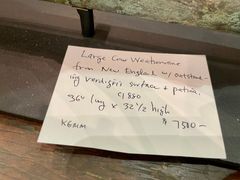 Large Cow Weathervane
from New England w/ outstand-
ing verdigris surface + patina,
c1880
36" long x 32 1/2 high
$ 7500—
KGRIM